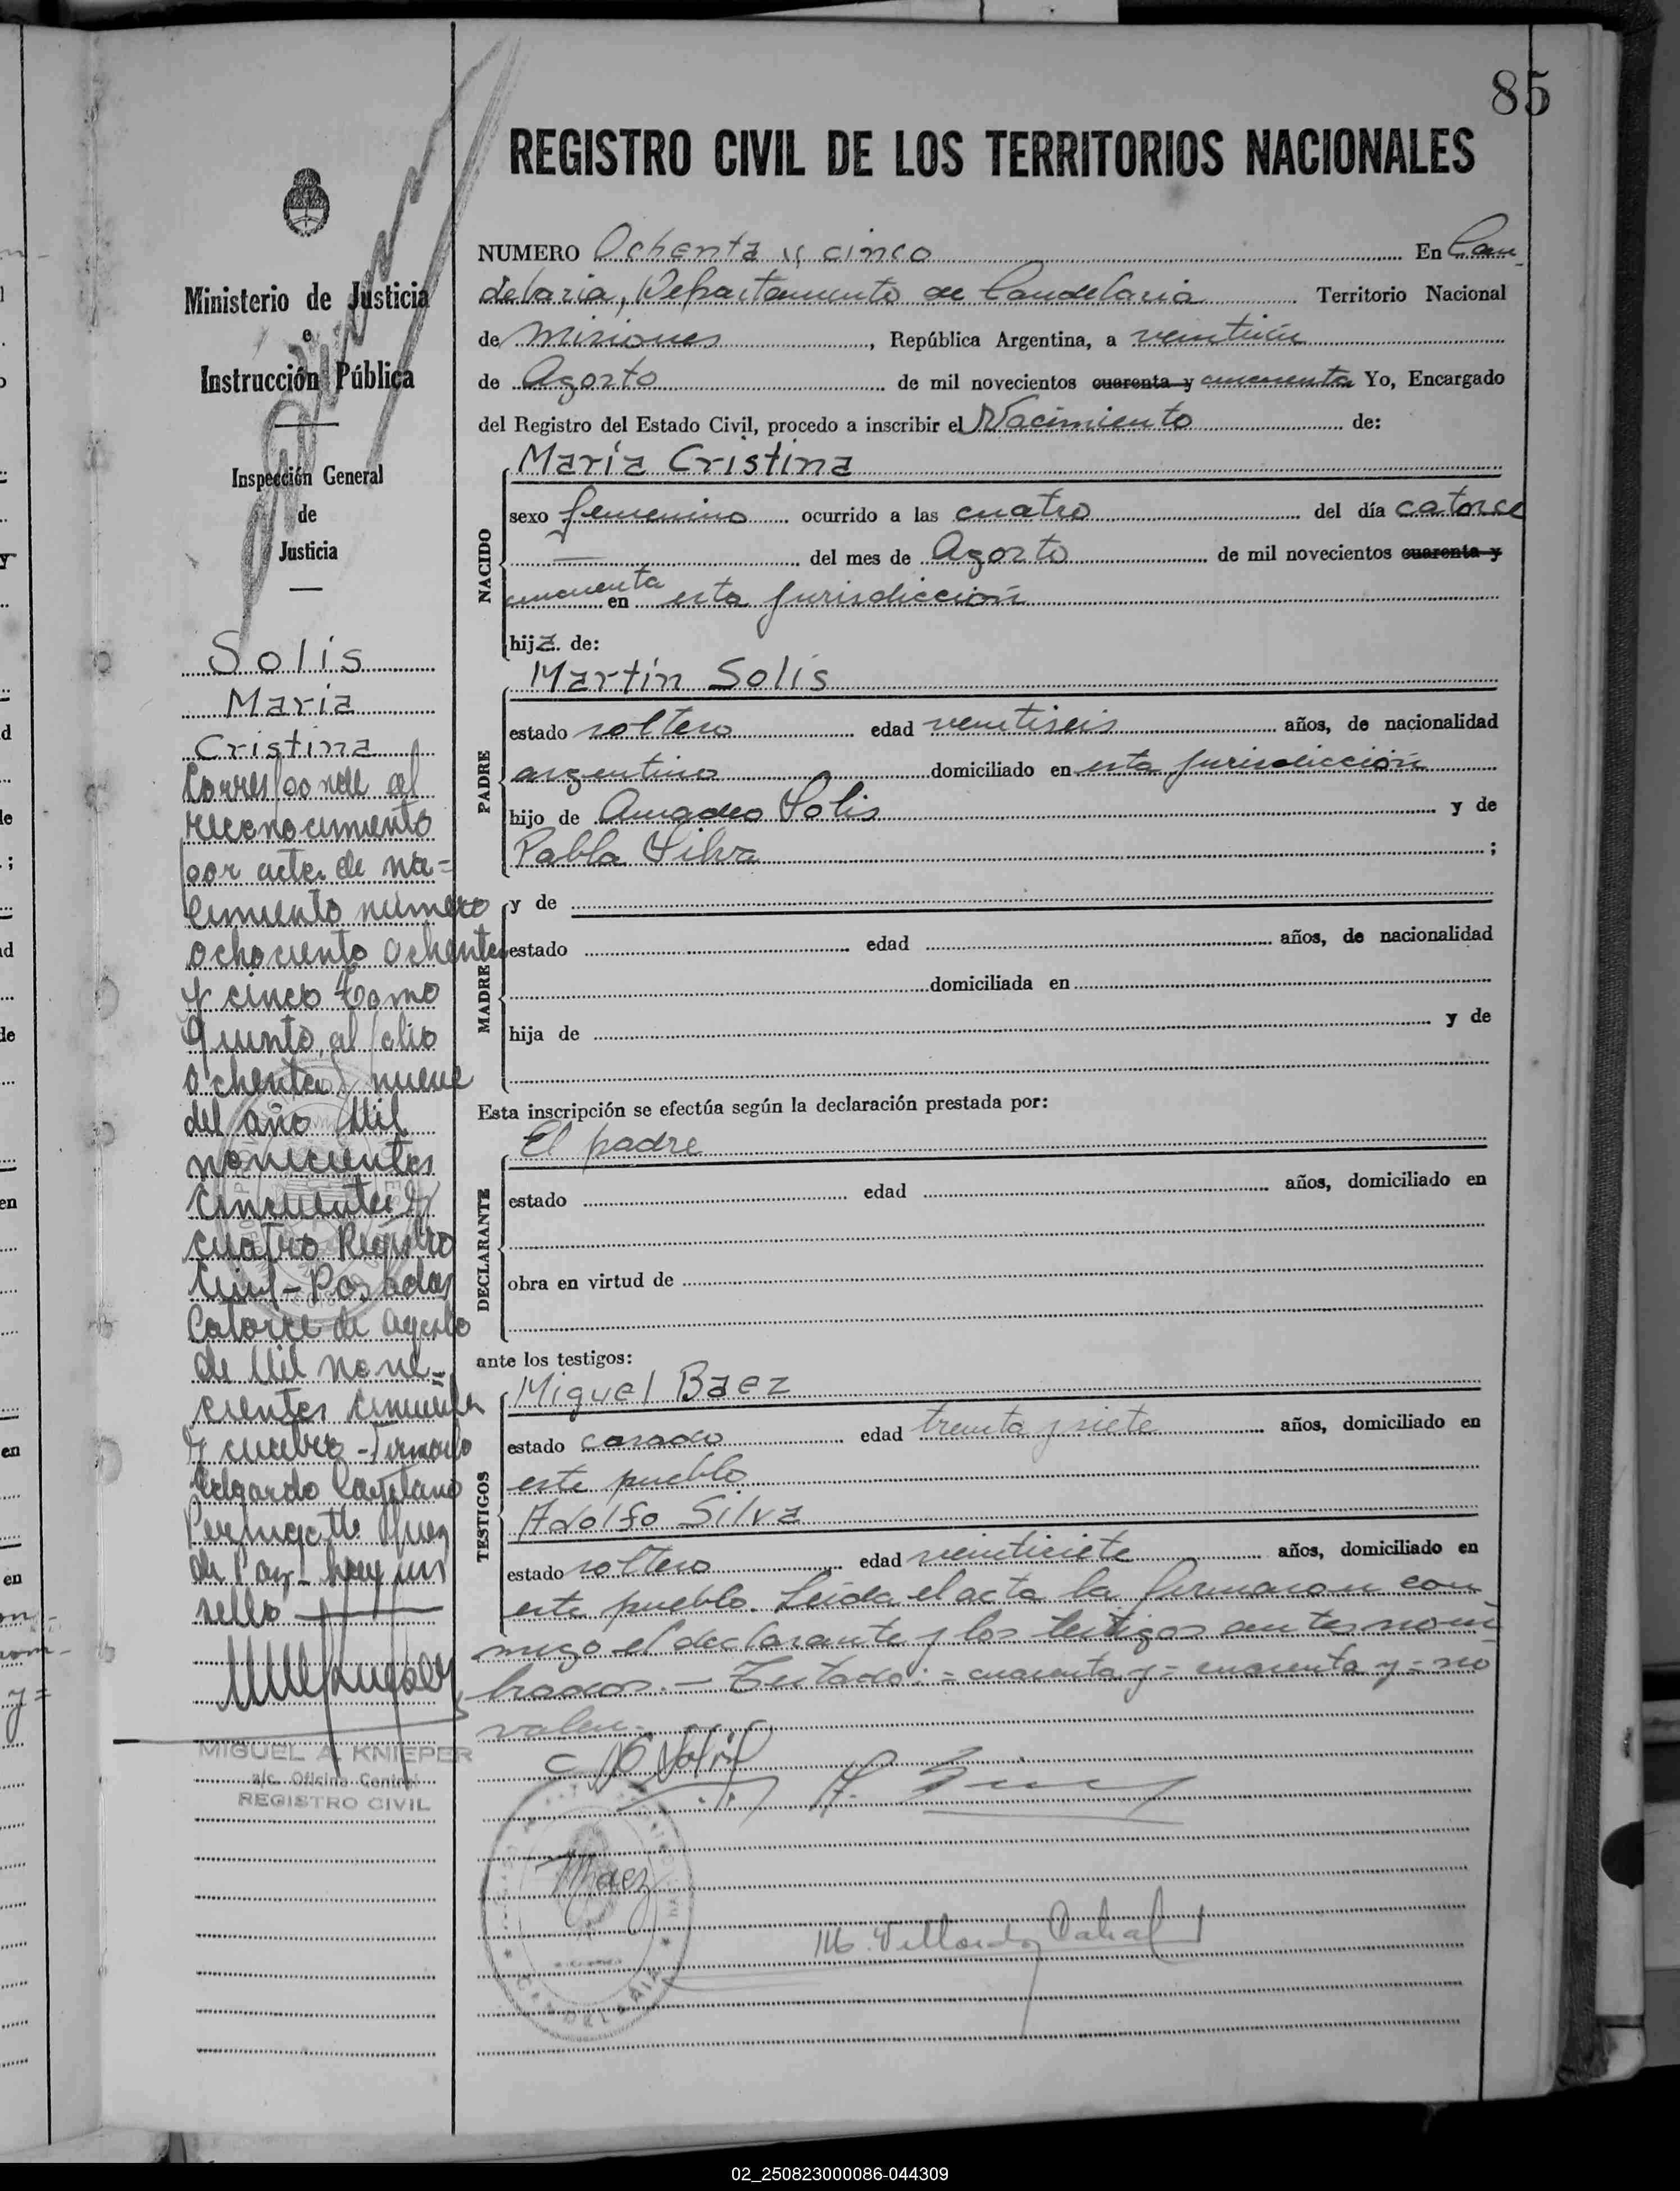 85
REGISTRO CIVIL DE LOS TERRITORIOS NACIONALES
Ministerio de Justicia
e
Instrucción Pública
Inspección General
de
Justicia
Solis
Maria
Cristina
Corresponde al
reconocimiento
por acta de na-
cimiento número
ochociento ochenta
y cinco tomo
Quinto, al folio
ochenta y nueve
del año Mil
novecientos
cincuenta y
cuatro Registro
Civil - Posadas
Catorce de Agosto
de Mil nove-
cientos cincuenta
y cuatro - Firmado
Edgardo Cayetano
Juez
de Paz - hay un
sello
MIGUEL A. KNIEPER
a/c. Oficina Central
REGISTRO CIVIL
NUMERO Ochenta y cinco En Can-
delaria, Departamento de Candelaria Territorio Nacional
de Misiones, República Argentina, a veintiún
de Agosto de mil novecientos cuarenta y cincuenta Yo, Encargado
del Registro del Estado Civil, procedo a inscribir el Nacimiento de:
NACIDO
María Cristina
sexo femenino ocurrido a las cuatro del día catorce
— del mes de Agosto de mil novecientos cuarenta y
cincuenta en esta jurisdicción
hija de:
PADRE
Martín Solís
estado soltero edad veintiseis años, de nacionalidad
argentino domiciliado en esta jurisdicción
hijo de Amadeo Solis y de
Pabla Silva ;
MADRE
y de
estado edad años, de nacionalidad
domiciliada en
hija de y de
Esta inscripción se efectúa según la declaración prestada por:
DECLARANTE
El padre
estado edad años, domiciliado en
obra en virtud de
ante los testigos:
TESTIGOS
Miguel Baez
estado casado edad treinta y siete años, domiciliado en
este pueblo
Adolfo Silva
estado soltero edad veintisiete años, domiciliado en
este pueblo. Leida el acta la firmaron con
migo el declarante y los testigos antes nom-
brados. - Testado: = cuarenta y = cuarenta y = no
valen.
Solis
Baez
CANDELARIA
02_250823000086-044309